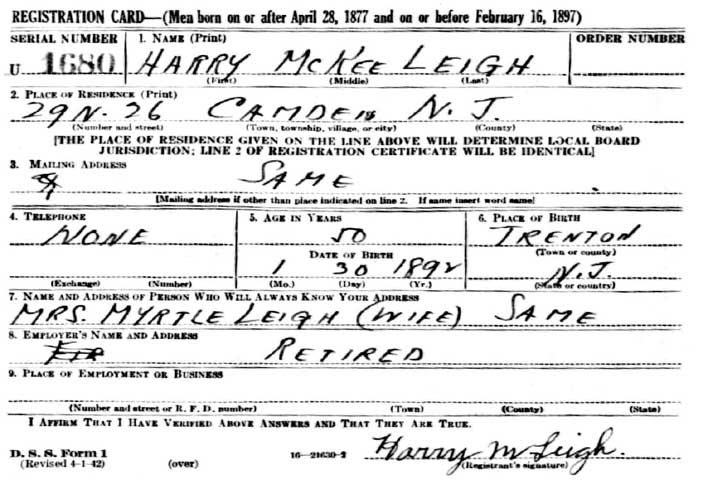 REGISTRATION CARD—(Men born on or after April 28, 1877 and on or before February 16, 1897)
SERIAL NUMBER 1. NAME (Print) ORDER NUMBER
U 1680 HARRY McKEE LEIGH
(First) (Middle) (Last)
2. PLACE OF RESIDENCE (Print)
29 N. 26 CAMDEN N. J.
(Number and street) (Town, township, village, or city) (County) (State)
[THE PLACE OF RESIDENCE GIVEN ON THE LINE ABOVE WILL DETERMINE LOCAL BOARD
JURISDICTION; LINE 2 OF REGISTRATION CERTIFICATE WILL BE IDENTICAL]
3. MAILING ADDRESS
SAME
[Mailing address if other than place indicated on line 2. If same insert word same]
4. TELEPHONE 5. AGE IN YEARS 6. PLACE OF BIRTH
NONE 50 TRENTON
DATE OF BIRTH (Town or county)
1 30 1892 N.J.
(Exchange) (Number) (Mo.) (Day) (Yr.) (State or country)
7. NAME AND ADDRESS OF PERSON WHO WILL ALWAYS KNOW YOUR ADDRESS
MRS. MYRTLE LEIGH (WIFE) SAME
8. EMPLOYER'S NAME AND ADDRESS
RETIRED
9. PLACE OF EMPLOYMENT OR BUSINESS
(Number and street or R. F. D. number) (Town) (County) (State)
I AFFIRM THAT I HAVE VERIFIED ABOVE ANSWERS AND THAT THEY ARE TRUE.
D. S. S. Form 1 Harry M Leigh.
(Revised 4-1-42) (over) 16—21630-2 (Registrant's signature)